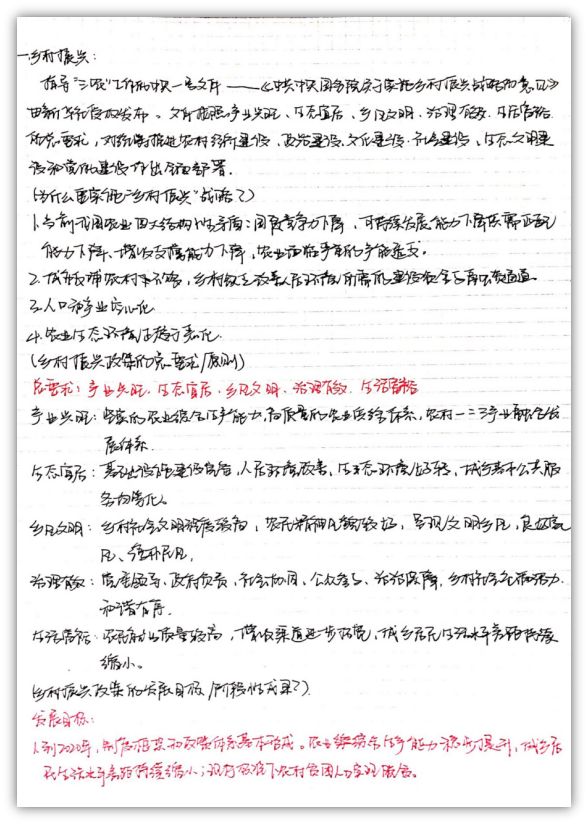 一.乡村振兴:
指导“三农”工作的中央一号文件——《中共中央国务院关于实施乡村振兴战略的意见》
由新华社授权发布。文件按照产业兴旺、生态宜居、乡风文明、治理有效、生活富裕
的总要求,对统筹推进农村经济建设、政治建设、文化建设、社会建设、生态文明建
设和党的建设作出全面部署。
(为什么要实施“乡村振兴”战略?)
1.当前我国农业四大结构性矛盾:国际竞争力下降,可持续发展能力下降,供需匹配
能力下降、增收支撑能力下降,农业面临严重的
2.城乡 农村 不够,乡村缺乏改善人居环境所需的建设资金与
3.人口和产业空心化
4.农业生态环境 恶化.
(乡村振兴政策的总要求/原则)
总要求:产业兴旺、生态宜居、乡风文明、治理有效、生活富裕
产业兴旺:坚实的农业综合生产能力,高质量的农业供给体系,农村一二三产业融合发
展体系.
生态宜居:基础设施建设完备,人居环境改善,生态环境好转,城乡基本公共服
务均等化。
乡风文明:乡村社会文明程度较高,农民精神风貌较好,呈现文明乡风,良好家
风、淳朴民风,
治理有效:党委领导、政府负责,社会协同、公众参与、法治保障,乡村社会充满活力
和谐有序.
生活富裕:农民就业质量较高,增收渠道进一步拓宽,城乡居民生活水平差距持续
缩小。
(乡村振兴政策的发展目标/阶段性成果?)
发展目标:
1.到2020年,制度框架和政策体系基本形成。农业综合生产能力稳步提升,城乡居
民生活水平差距持续缩小;现行标准下农村贫困人口实现脱贫。